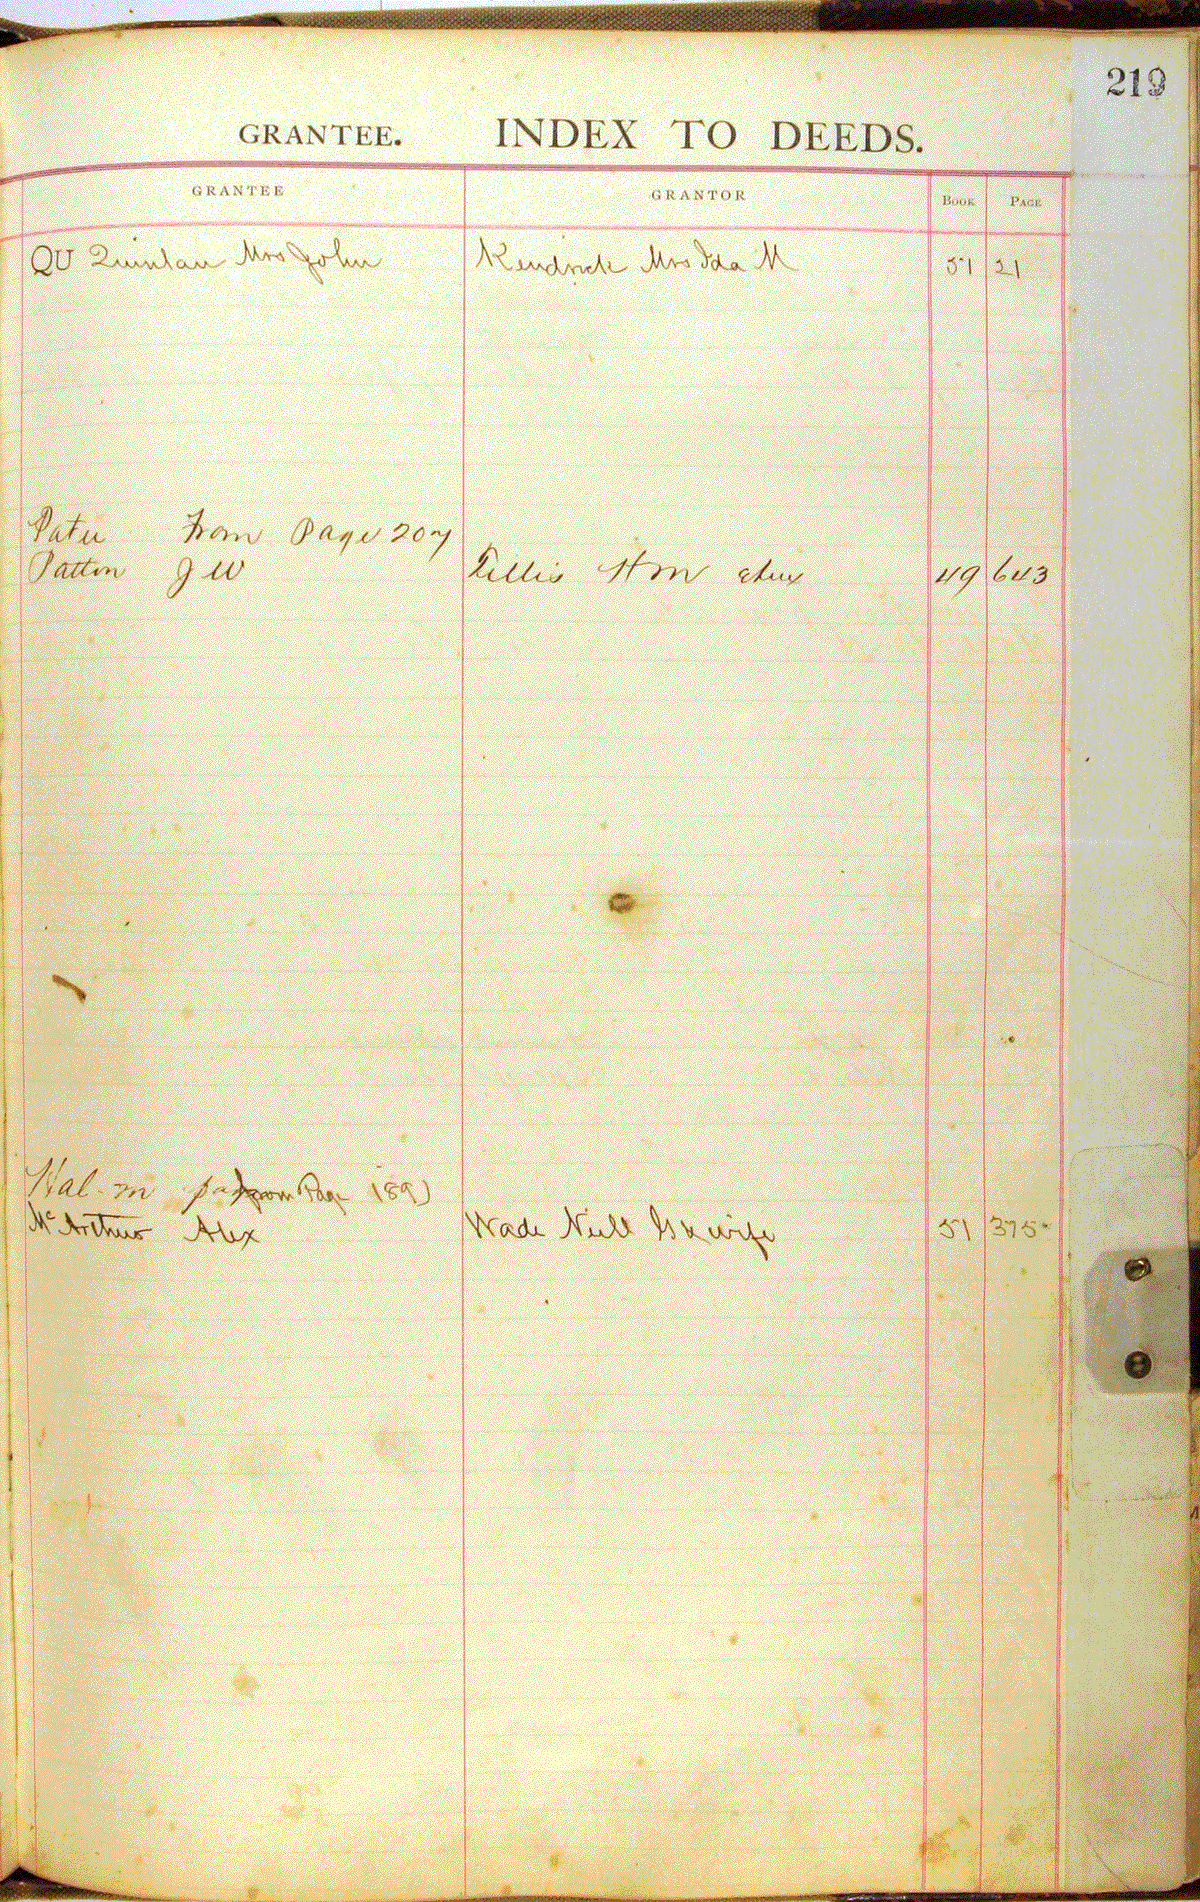 219
GRANTEE. INDEX TO DEEDS.
GRANTEE GRANTOR BOOK PAGE
QU Quinlan Mrs John Kendrick Mrs Ida M 51 21
From Page 207
Patton J W Tillis H M etux 49 643
from Page 189)
McArthur Alex Wade Neill G & wife 51 375